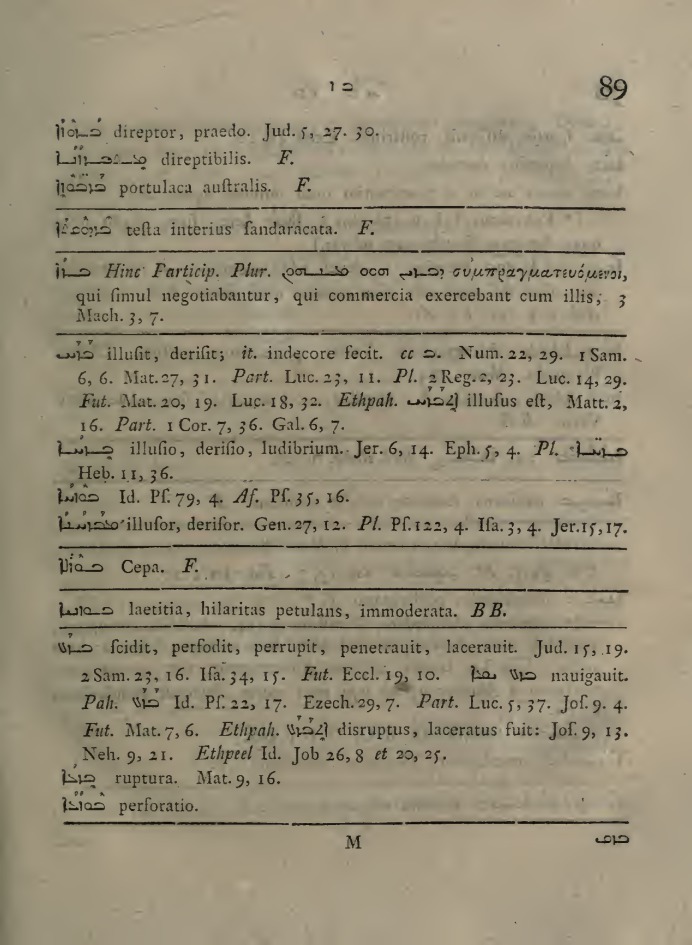 ܒ ܙ 89
direptor, praedo. Jud. 5, 27. 30.
direptibilis. F.
portulaca auſtralis. F.
teſta interius ſandaracata. F.
Hinc Particip. Plur. ܗܘܘ συμπραγματευόμενοι,
qui ſimul negotiabantur, qui commercia exercebant cum illis, 3
Mach. 3, 7.
ܒܙܚ illuſit, deriſit; it. indecore fecit. cc ܒ. Num. 22, 29. 1 Sam.
6, 6. Mat. 27, 31. Part. Luc. 23, 11. Pl. 2 Reg. 2, 23. Luc. 14, 29.
Fut. Mat. 20, 19. Luc. 18, 32. Ethpah. ܐܬܒܙܚ illuſus eſt, Matt. 2,
16. Part. 1 Cor. 7, 36. Gal. 6, 7.
ܒܙܚܐ illuſio, deriſio, ludibrium. Jer. 6, 14. Eph. 5, 4. Pl. ܒܙܚܐ
Heb. 11, 36.
ܒܘܙܚܐ Id. Pſ. 79, 4. Af. Pſ. 35, 16.
illuſor, deriſor. Gen. 27, 12. Pl. Pſ. 122, 4. Iſa. 3, 4. Jer. 15, 17.
Cepa. F.
laetitia, hilaritas petulans, immoderata. BB.
ܒܙܥ ſcidit, perfodit, perrupit, penetrauit, lacerauit. Jud. 15, 19.
2 Sam. 23, 16. Iſa. 34, 15. Fut. Eccl. 19, 10. ܒܙܥ ܝܡܐ nauigauit.
Pah. ܒܙܥ Id. Pſ. 22, 17. Ezech. 29, 7. Part. Luc. 5, 37. Joſ. 9. 4.
Fut. Mat. 7, 6. Ethpah. ܐܬܒܙܥ disruptus, laceratus fuit: Joſ. 9, 13.
Neh. 9, 21. Ethpeel Id. Job 26, 8 et 20, 25.
ܒܙܥܐ ruptura. Mat. 9, 16.
ܒܘܙܥܐ perforatio.
M